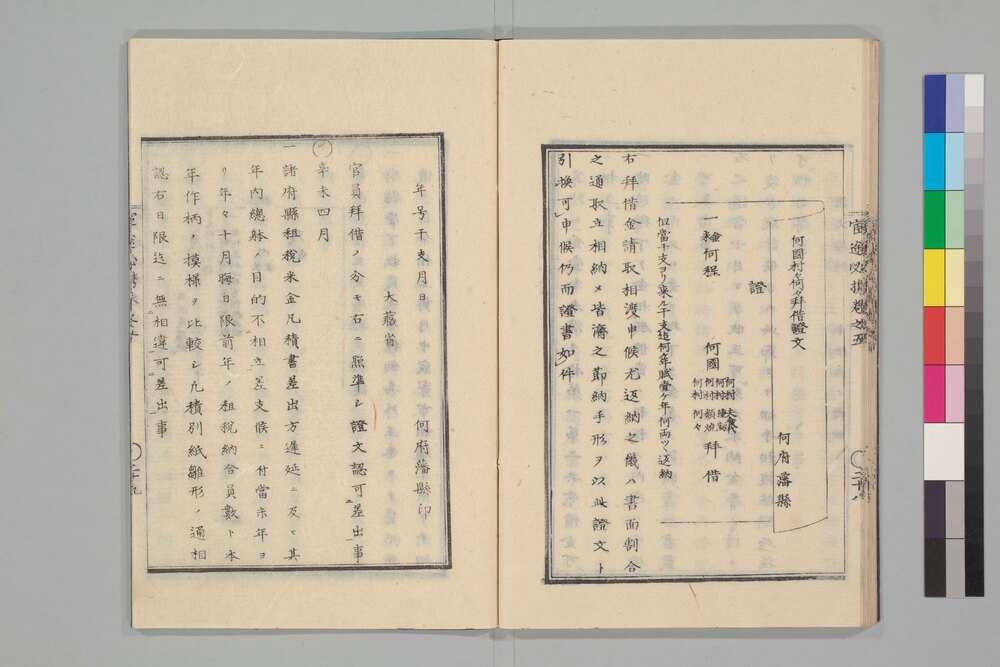 何國村々何々拜借證文
何府藩縣
證
一金米何程 何國 何村何村何村 拜借
但當干支ヨリ来ル干支迄何年賦壹ヶ年何両ツヽ返納
右拜借金請取相渡申候尤返納之儀ハ書面割合
之通取立相納メ皆濟之節納手形ヲ以此證文ト
引換可申候仍而證書如件
年号干支月日 何府藩縣印
大藏省
官員拜借ノ分モ右ニ照準シ證文認可差出事
辛未四月
一諸府縣租税米金凡積書差出方遅延ニ及ヒ其
年内總躰ノ目的不相立差支候ニ付當未年ヨ
リ年々十月晦日限前年ノ租税納合員數ト本
年作柄ノ摸様ヲ比較シ凡積別紙雛形ノ通相
認右日限迄ニ無相違可差出事